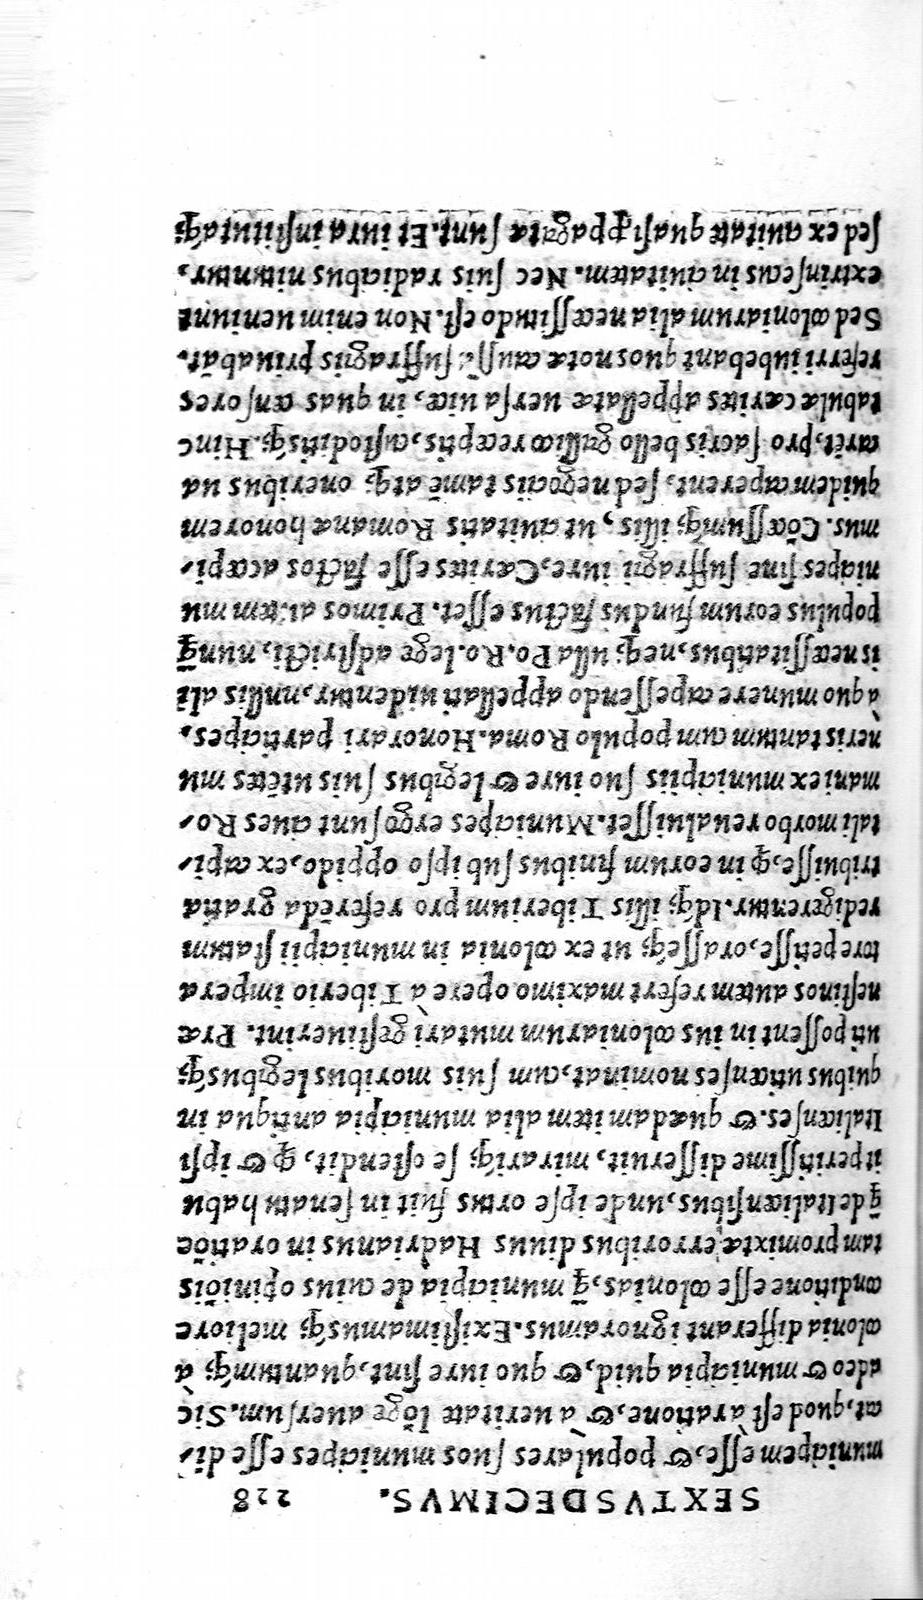 SEXTVSDECIMVS. 228
municipem esse, & populares suos municipes esse di-
cit, quod est à ratione, & a ueritate lōge auersum. Sic
adeo & municipia quid, & quo iure sint, quantumq́; à
colonia differant ignoramus. Existimamusq́; meliore
conditione esse colonias, q̄ municipia de cuius opiniōis
tam promixtæ erroribus diuus Hadrianus in oratiōe
q̄ de Italicensibus, unde ipse ortus fuit in senatu habu
it peritissime disseruit, mirariq́; se ostendit, ꝙ & ipsi
Italicenses. & quædam item alia municipia antiqua in
quibus uticenses nominat, cum suis moribus legibusq́;
uti possent in ius coloniarum mutari gestiuerint. Præ
nestinos autem refert maximo opere à Tiberio impera
tore petisse, orasseq́; ut ex colonia in municipii statum
redigerentur. Idq́; illis Tiberium pro referēda gratia
tribuisse, ꝙ in eorum finibus sub ipso oppido, ex capi-
tali morbo reualuisset. Municipes ergo sunt ciues Ro-
mani ex municipiis suo iure & legibus suis utētes mu
neris tantum cum populo Roma. Honorari participes.
à quo munere capessendo appellati uidentur, nullis ali
is necessitatibus, neq́; ulla Po. Ro. lege adstricti, nunq̄
populus eorum fundus factus esset. Primos autem mu
nicipes sine suffragii iure, Cærites esse factos accepi-
mus. Cōcessumq́; illis, ut ciuitatis Romanæ honorem
quidem caperent, sed negociis tamē atq́; oneribus ua
carēt, pro sacris bello gallico receptis, custoditisq́;. Hinc
tabulæ cærites appellatæ uersa uice, in quas censores
referri iubebant quos notæ causa suffragiis priuabāt.
Sed coloniarum alia necessitudo est. Non enim ueniunt
extrinsecus in ciuitatem. Nec suis radicibus nituntur,
sed ex ciuitate quasi ꝓpagatæ sunt. Et iura institutaq́;